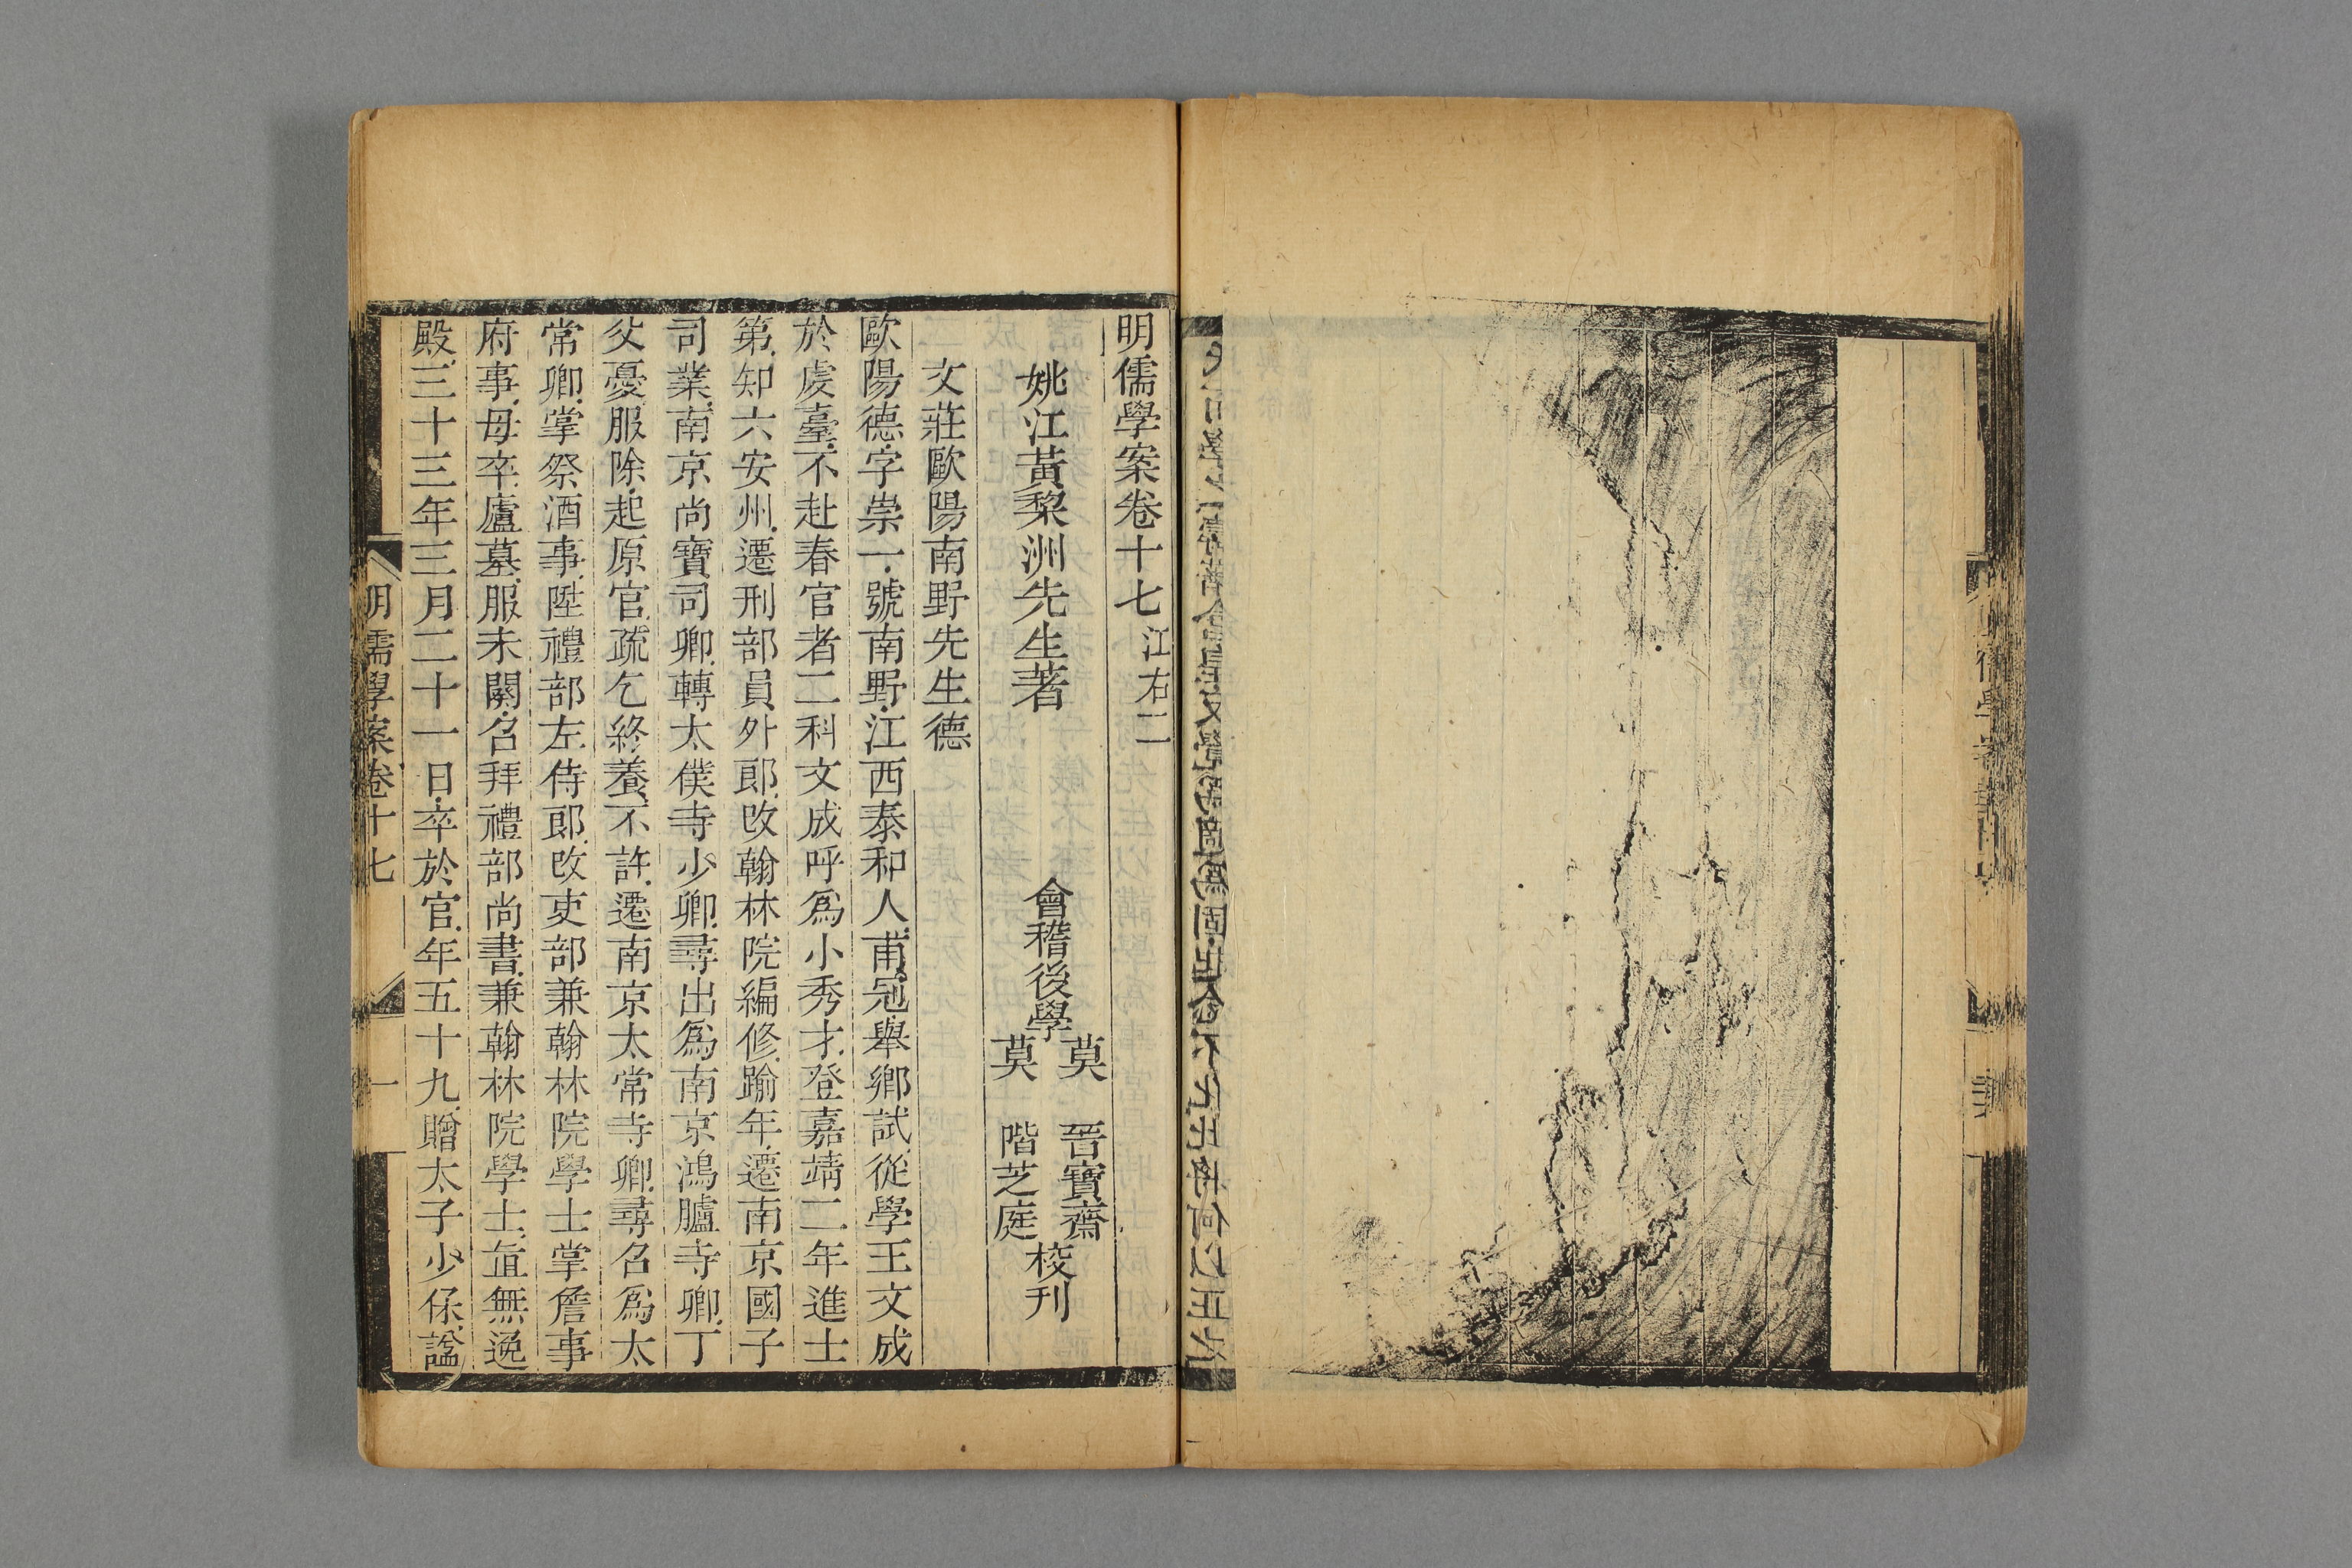 明儒學案卷十七 江右二
姚江黃棃洲先生著
會稽後學
莫 晉寶齋
莫 階芝庭
校刊
文莊歐陽南野先生德
歐陽德字崇一號南野江西泰和人甫冠舉鄉試從學王文成
於虔臺不赴春官者二科文成呼爲小秀才登嘉靖二年進士
第知六安州遷刑部員外郎改翰林院編修踰年遷南京國子
司業南京尚寶司卿轉太僕寺少卿尋出爲南京鴻臚寺卿丁
父憂服除起原官疏乞終養不許遷南京太常寺卿尋召爲太
常卿掌祭酒事陞禮部左侍郎改吏部兼翰林院學士掌詹事
府事母卒廬墓服未闋召拜禮部尚書兼翰林院學士直無逸
殿三十三年三月二十一日卒於官年五十九贈太子少保諡
明儒學案卷十七
一